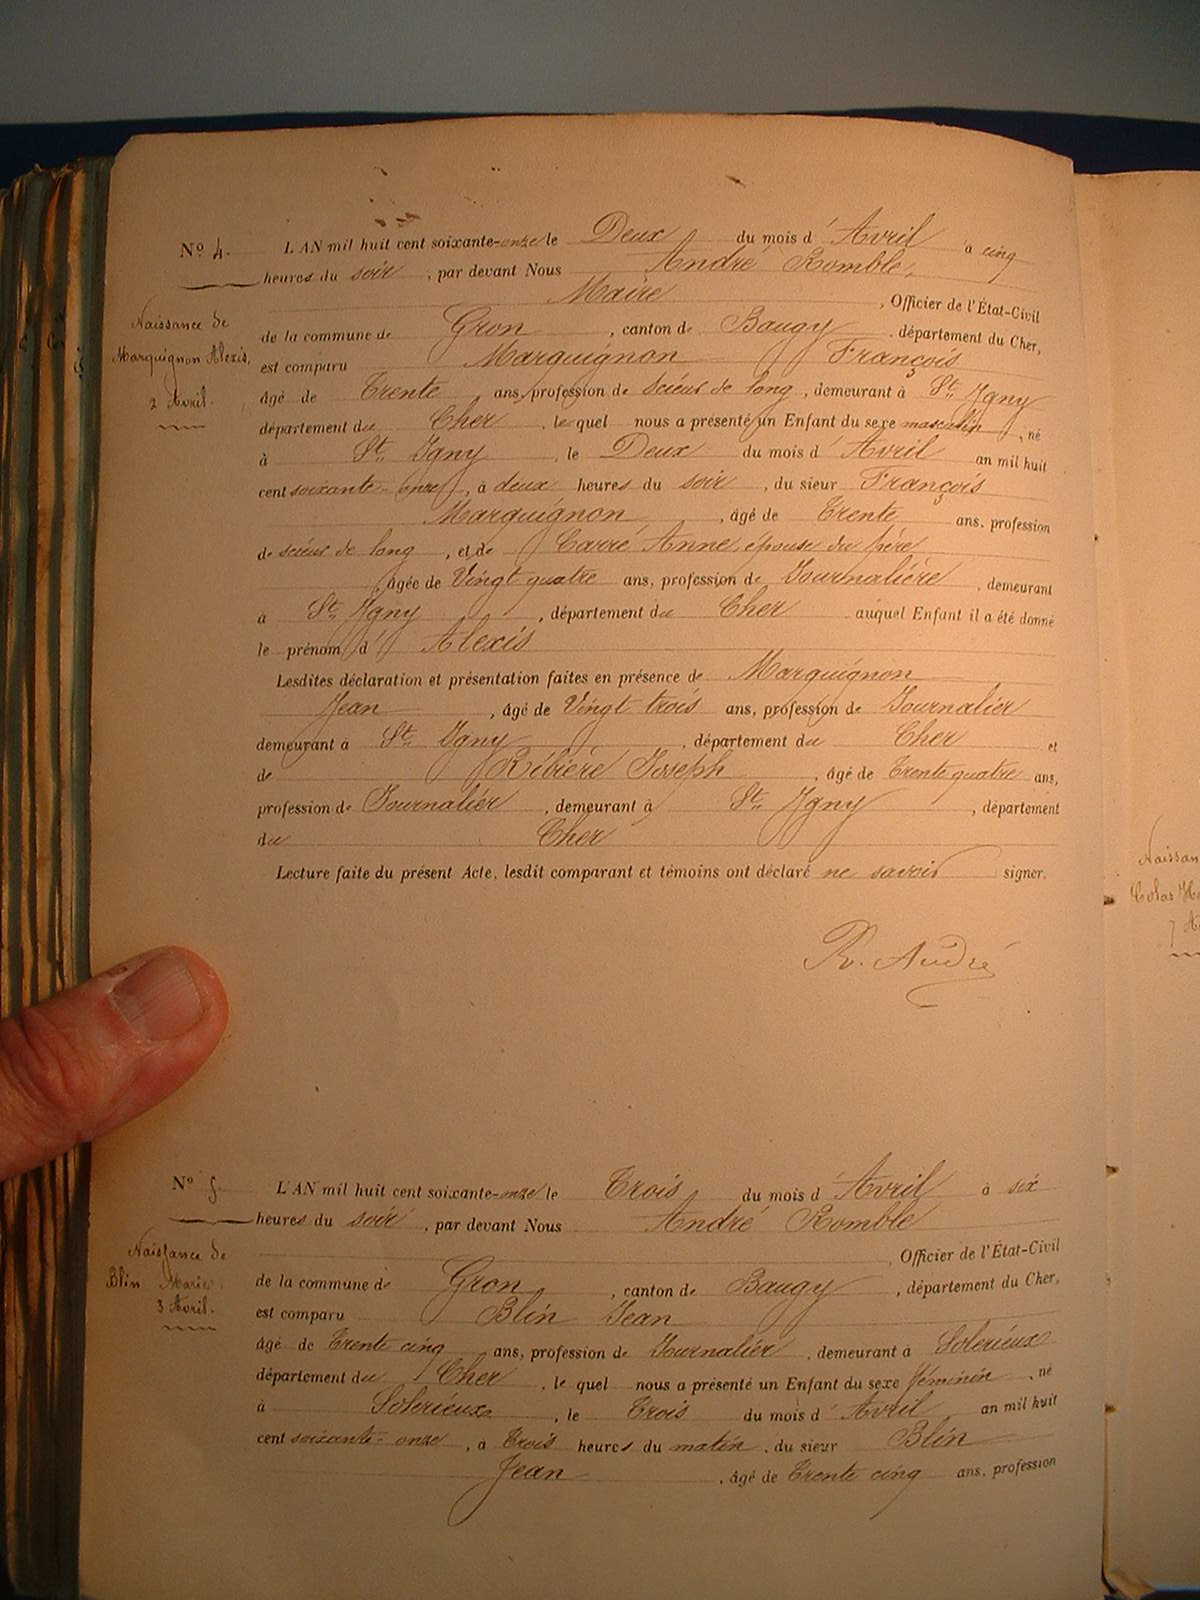 Nº 4. L'AN mil huit cent soixante-onze le Deux du mois d'Avril à cinq
heures du soir, par devant Nous André Romble,
Maire, Officier de l'État-Civil
Naissance de
Marquignon Alexis,
2 Avril.
de la commune de Gron, canton de Baugy, département du Cher,
est comparu Marquignon François
âgé de Trente ans, profession de scieur de long, demeurant à St. Igny
département du Cher, le quel nous a présenté un Enfant du sexe masculin, né
à St. Igny, le Deux du mois d'Avril an mil huit
cent soixante-onze, à deux heures du soir, du sieur François
Marquignon, âgé de Trente ans, profession
de scieur de long, et de Carré Anne, épouse du père
âgée de Vingt quatre ans, profession de Journalière, demeurant
à St. Igny, département du Cher auquel Enfant il a été donné
le prénom d'Alexis
Lesdites déclaration et présentation faites en présence de Marquignon
Jean, âgé de Vingt trois ans, profession de Journalier
demeurant à St. Igny, département du Cher et
de Ribière Joseph, âgé de Trente quatre ans,
profession de Journalier, demeurant à St. Igny, département
du Cher
Lecture faite du présent Acte, lesdit comparant et témoins ont déclaré ne savoir signer.
R. André
Nº 5. L'AN mil huit cent soixante-onze le Trois du mois d'Avril à six
heures du soir, par devant Nous André Romble
, Officier de l'État-Civil
Naissance de
Blin Marie.
3 Avril.
de la commune de Gron, canton de Baugy, département du Cher,
est comparu Blin Jean
âgé de Trente cinq ans, profession de Journalier, demeurant à Solerieux
département du Cher, le quel nous a présenté un Enfant du sexe féminin, né
à Solerieux, le Trois du mois d'Avril an mil huit
cent soixante-onze, à Trois heures du matin, du sieur Blin
Jean, âgé de Trente cinq ans, profession
Naissan
Colas
7